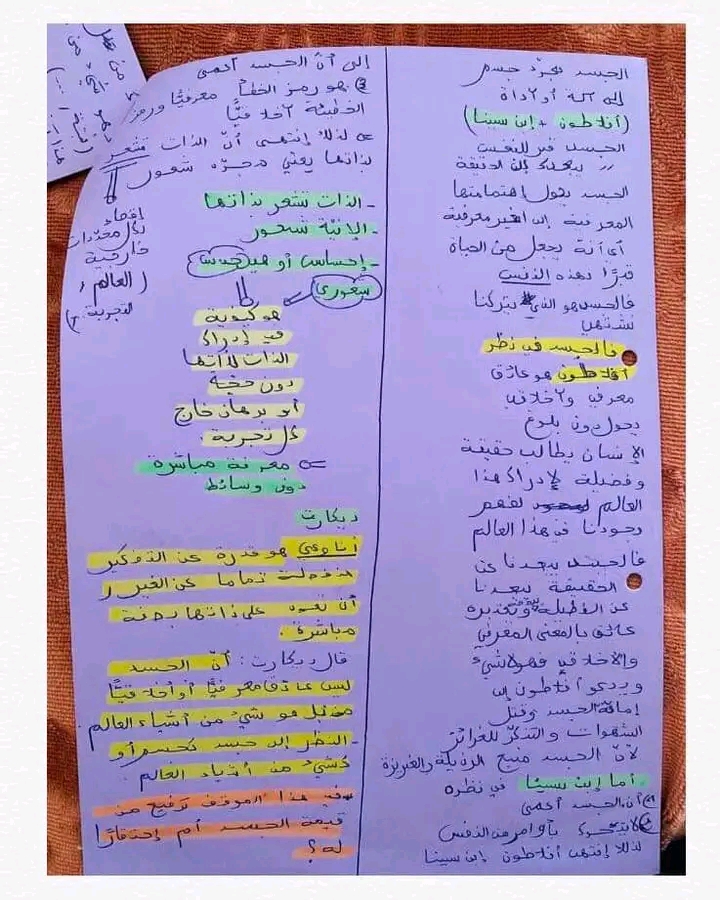 الجسد مجرّد جسم
إلى آلة أو أداة
(أفلاطون + إبن سينا)
الجسد قبر للنفس
الجسد يحول اهتماماتها
المعرفية إلى الغير معرفية
أي أنه يجعل من الحياة
قبرًا بهذه النفس
فالجسد هو الذي يتركنا
نشتهي
فالجسد في نظر
أفلاطون هو عائق
معرفي وأخلاقي
يحول دون بلوغ
الإنسان يطالب حقيقة
وفضيلة لإدراك هذا
العالم لفهم
وجودنا في هذا العالم
فالجسد يبعدنا عن
الحقيقة يبعدنا
عن الفضيلة
عائق بالمعنى المعرفي
والأخلاقي فهو لا شيء
ويدعو أفلاطون إلى
إماتة الجسد وقتل
الشهوات والتنكّر للغرائز
لأنّ الجسد منبع الرذيلة والغريزة
أما إبن سينا في نظره
أن الجسد أعمى
لا يتحرك بأوامر من النفس
لذلك إنتهى أفلاطون إبن سينا
إلى أنّ الجسد أعمى
هو رمز الخطأ معرفيًّا ورمز
الخطيئة أخلاقيًّا
لذلك إنتهى أنّ الذات تشعر
بذاتها يعني مجرّد شعور
- الذات تشعر بذاتها
- الإنيّة شعور
- إحساس أو حدس
شعوري
إقصاء
لكل محددات
خارجية
(العالم،
التجربة)
هو كيفية
في إدراك
الذات لذاتها
دون حجة
أو برهان خارج
كل تجربة
معرفة مباشرة
دون وسائط
ديكارت
أنا وعي هو قدرة عن التفكير
تماما عن الغير و
على ذاتها بصفة
مباشرة.
قال ديكارت: أنّ الجسد
ليس عائق معرفيًّا أو أخلاقيًّا
بل هو شيء من أشياء العالم
- النظر إلى جسد كجسم أو
كشيء من أشياء العالم
في هذا الموقف ترفيع من
قيمة الجسد أم إحتقارًا
له؟